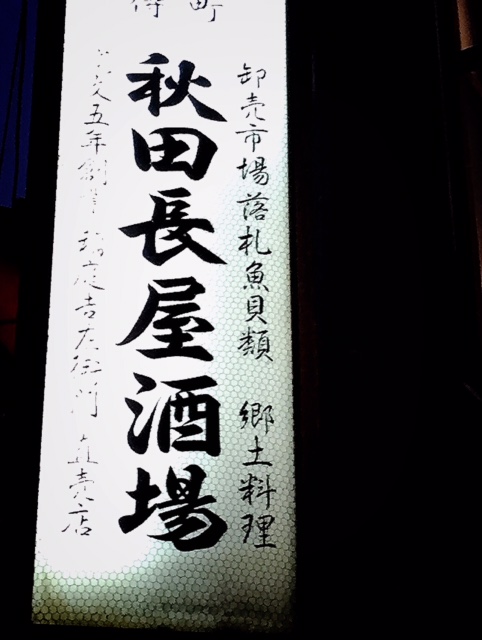 町
卸売市場落札魚貝類 郷土料理
秋田長屋酒場
五年創業 吉左衛門 直売店